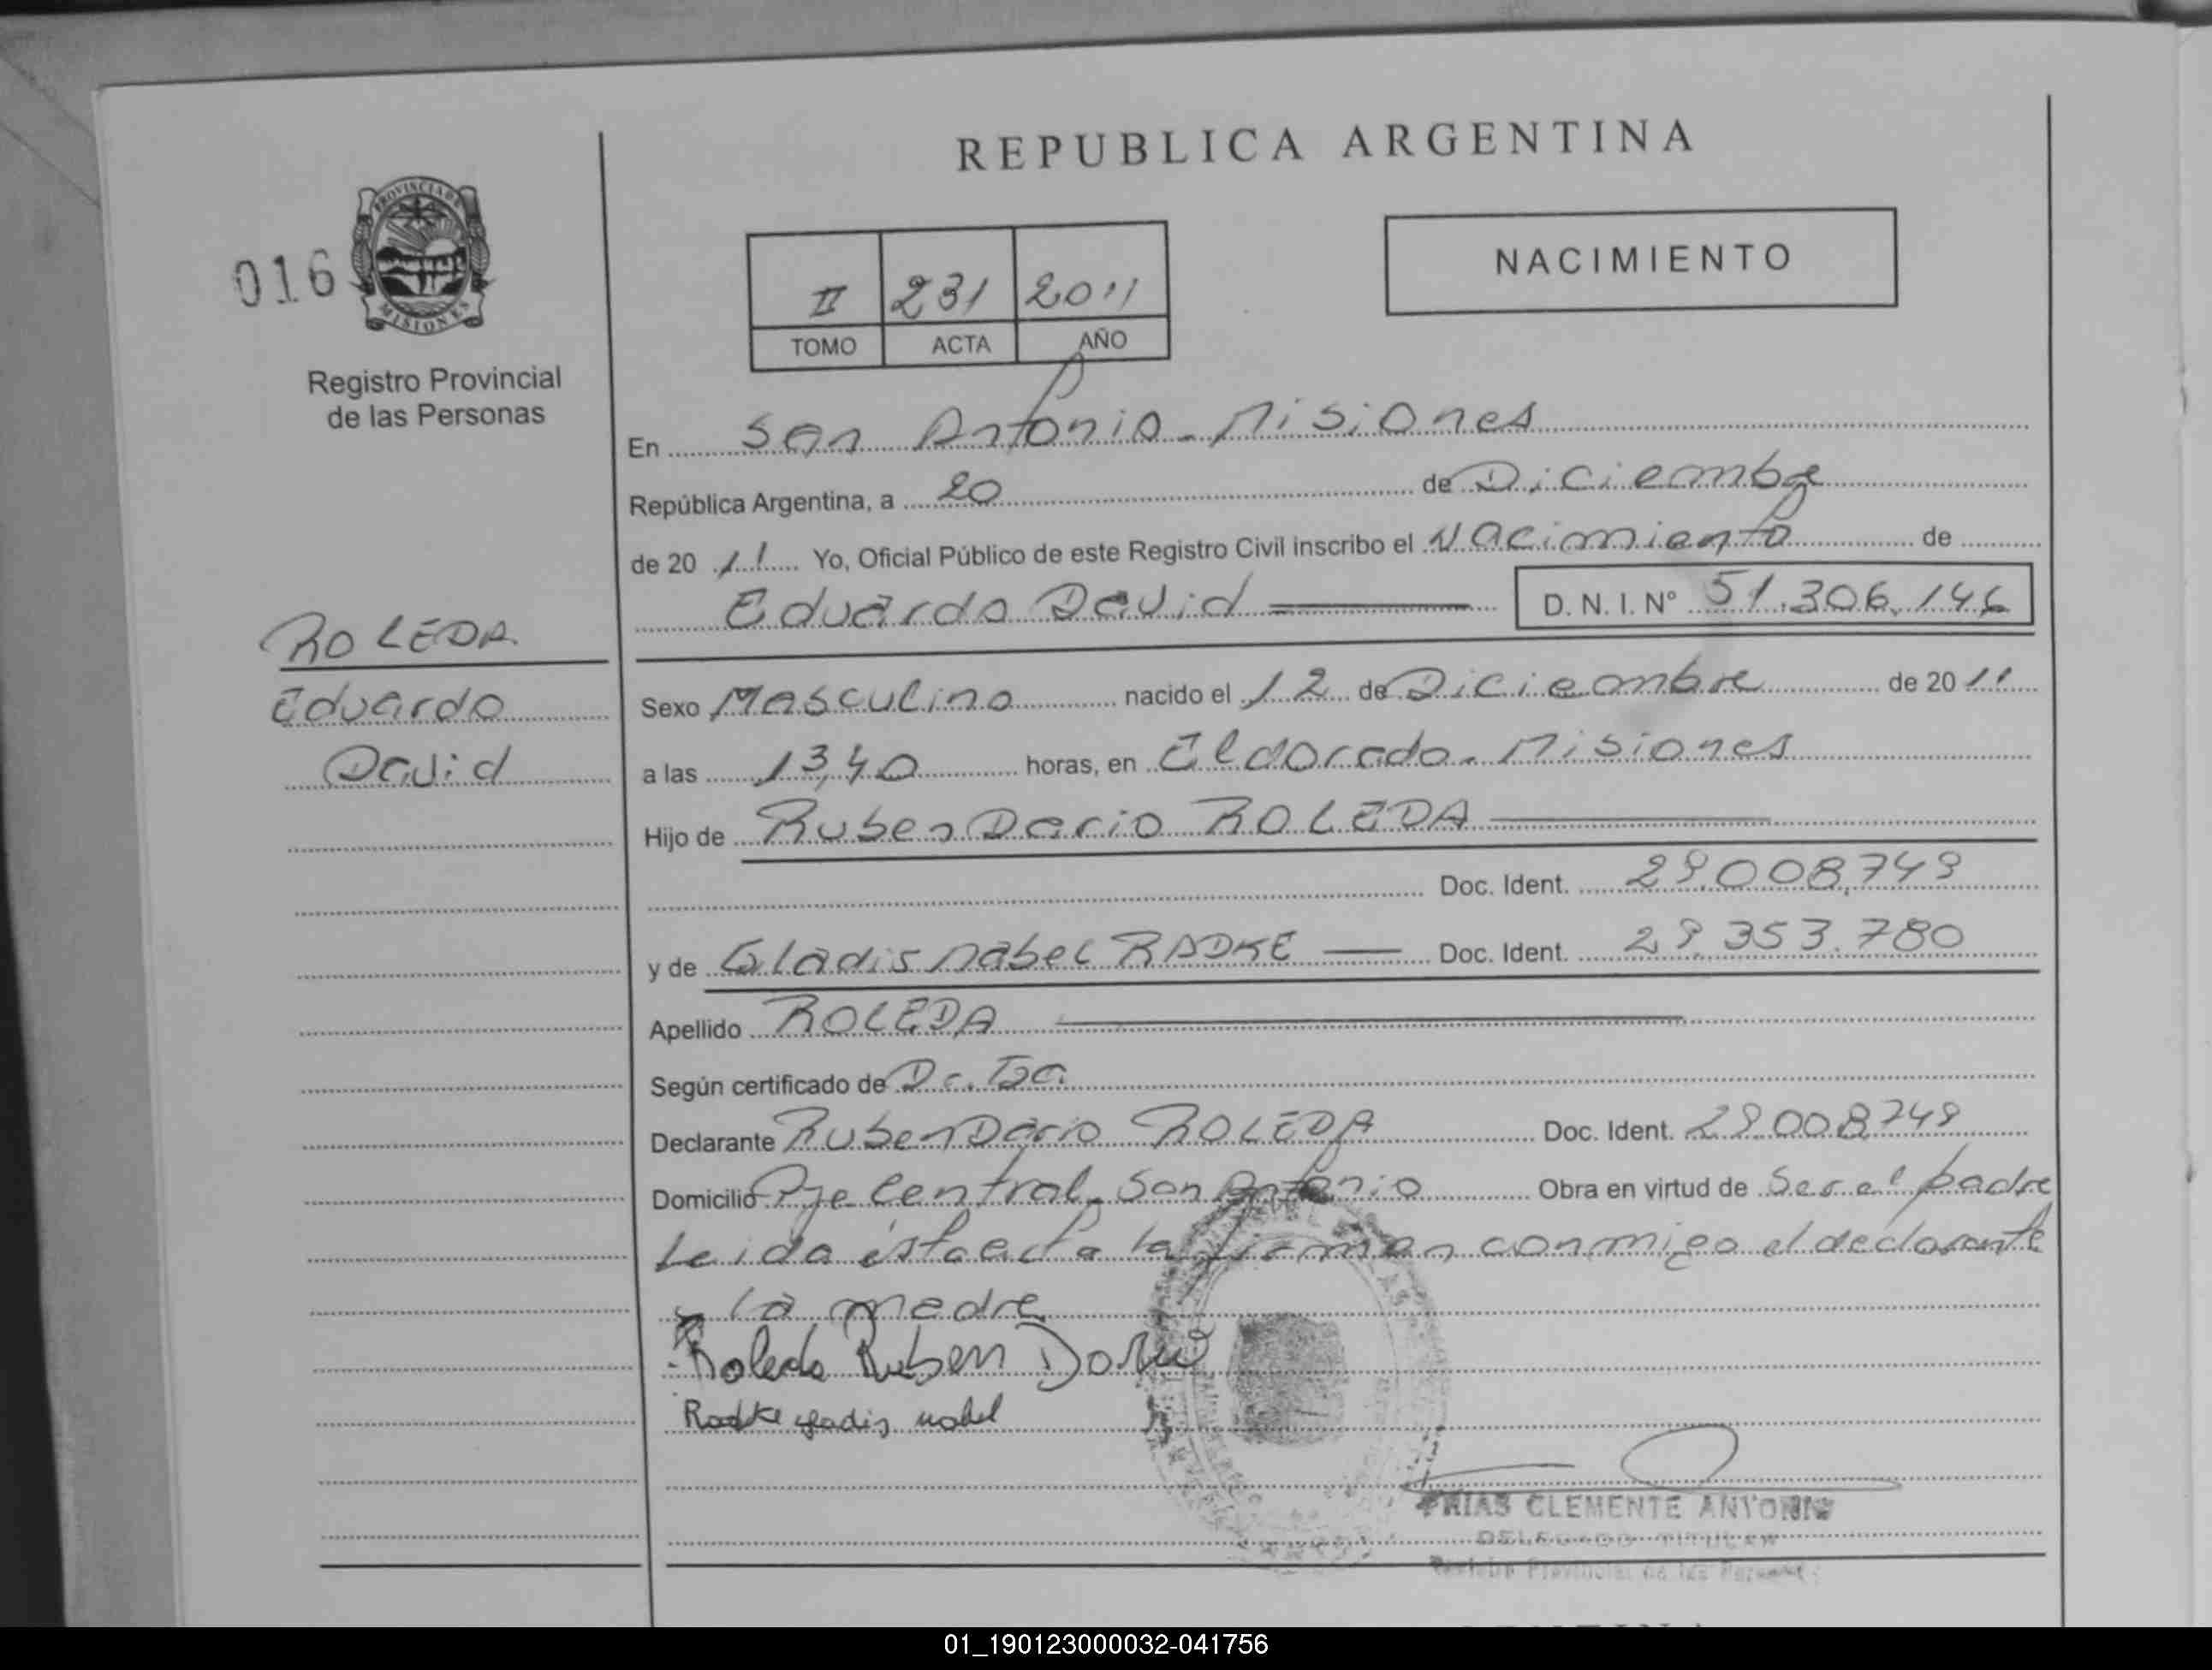 REPUBLICA ARGENTINA
016
PROVINCIA DE
MISIONES
Registro Provincial
de las Personas
NACIMIENTO
II 231 2011
TOMO ACTA AÑO
En San Antonio - Misiones
República Argentina, a 20 de Diciembre
de 20 11 Yo, Oficial Público de este Registro Civil inscribo el Nacimiento de
Eduardo David D.N.I. Nº 51.306.146
ROLEDA
Eduardo
David
Sexo Masculino nacido el 12 de Diciembre de 20 11
a las 13,40 horas, en Eldorado - Misiones
Hijo de Ruben Dario ROLEDA
Doc. Ident. 29.008.749
y de Gladis Mabel RADKE Doc. Ident. 29.353.780
Apellido ROLEDA
Según certificado de
Declarante Ruben Dario ROLEDA Doc. Ident. 29.008.749
Domicilio Pje Central - San Antonio Obra en virtud de Ser el padre
Leida ésta acta la firman conmigo el declarante
y la madre
Roleda Ruben Dario
Radke gladis mabel
FRIAS CLEMENTE ANTONIO
DELEGADO TITULAR
Registro Provincial de las Personas
01_190123000032-041756